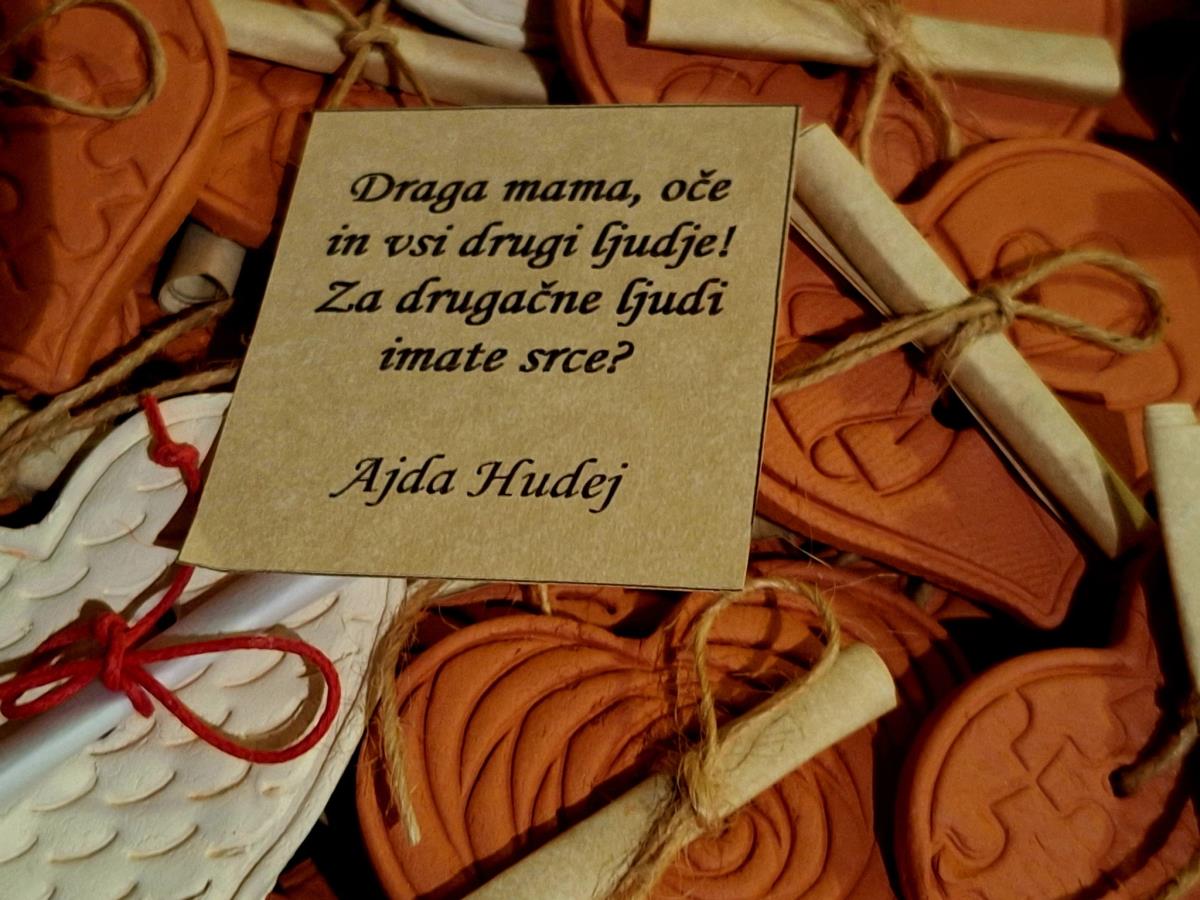 Draga mama, oče
in vsi drugi ljudje!
Za drugačne ljudi
imate srce?
Ajda Hudej